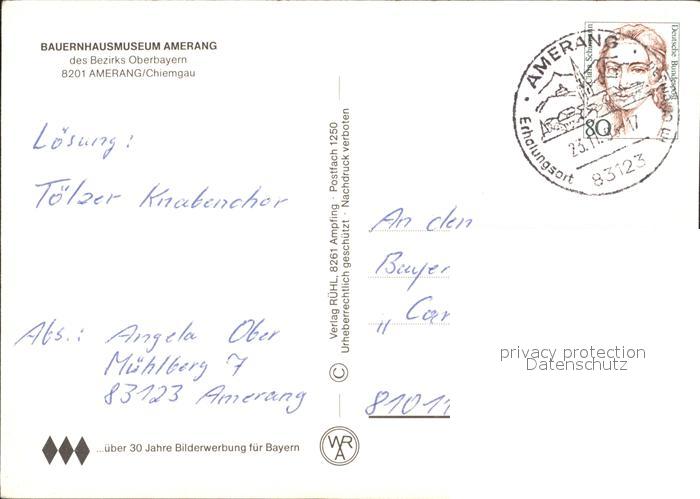 BAUERNHAUSMUSEUM AMERANG
des Bezirks Oberbayern
8201 AMERANG/Chiemgau
Lösung:
Tölzer Knabenchor
Abs.: Angela Ober
Mühlberg 7
83123 Amerang
...über 30 Jahre Bilderwerbung für Bayern
Verlag RÜHL, 8261 Ampfing · Postfach 1250
Urheberrechtlich geschützt · Nachdruck verboten
©
WRA
AMERANG
Erholungsort
83123
23.11.
17
Deutsche Bundespost
80
An den
Bayer
„ Car
8101
privacy protection
Datenschutz